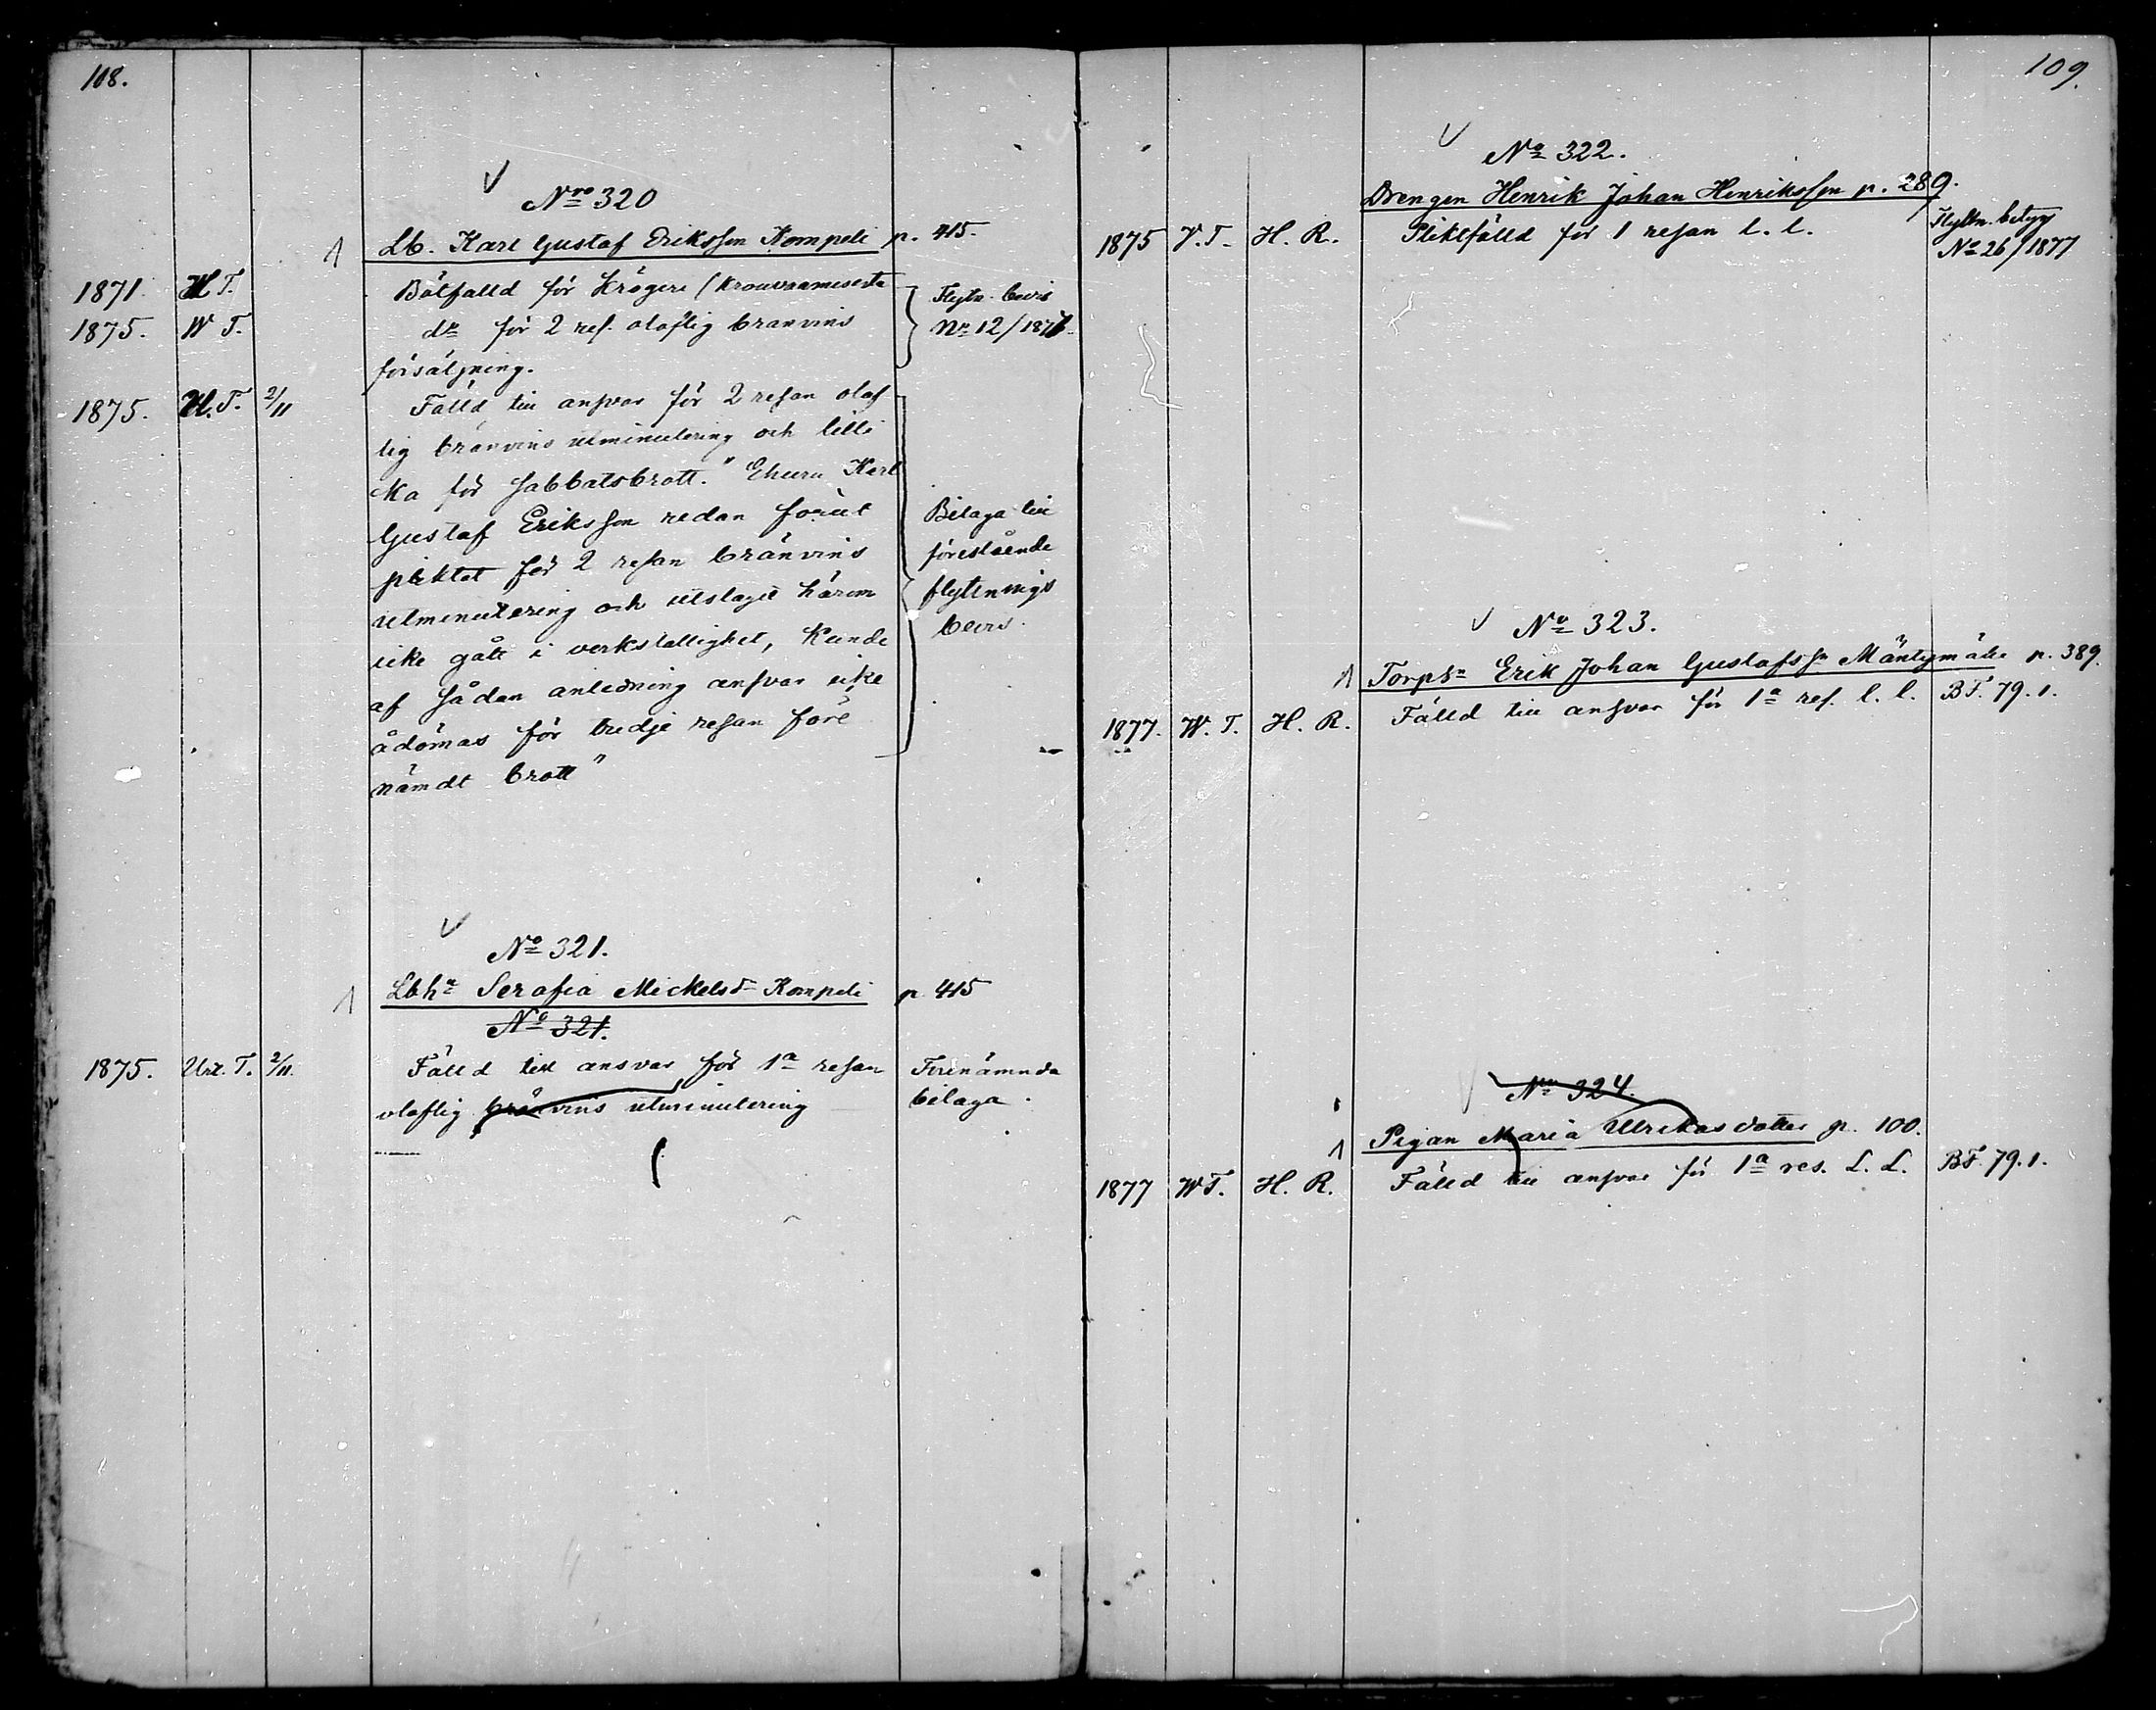 108.
Nro 320
Lb. Karl Gustaf Eriksson Kompeli p. 415.
1871. H T. Bötfälld för Krögeri (
1875. W T. do för 2 res. olaflig bränvins
försäljning.
Flytn. bevis
No 12/1877.
1875. U. T. 2/11 Fälld till ansvar för 2 resan olaf
lig bränvins utminutering och tilli
ka för sabbatsbrott. "Ehuru Karl
Gustaf Eriksson redan förut
pliktet för 2 resan bränvins
utminutering och utslaget härom
icke gått i verkställighet, kunde
af sådan anledning ansvar icke
ådömas för tredje resan före
nämdt brott"
Bilaga till
förestående
flyttnings
bevis.
No 321.
Lbhn Serafia Mickelsdr Kompeli p. 415
No 321.
1875. Urt. T. 2/11. Fälld till ansvar för 1a resan
olaflig bränvins utminutering
Förenämnda
bilaga.
109.
No 322.
Drengen Henrik Johan Henriksson p. 289.
1875 V. T. H. R. Pliktfälld för 1 resan l. l.
Flyttn. betyg
No 26/1877
No 323.
Torpsn Erik Johan Gustafssn Mäntymäki p. 389.
1877. W. T. H. R. Fälld till ansvar för 1a res. l. l. BF. 79. 1.
No 324.
Pigan Maria Ulrikasdotter p. 100.
1877 W T. H. R. Fälld till ansvar för 1a res. L. L. BF. 79. 1.